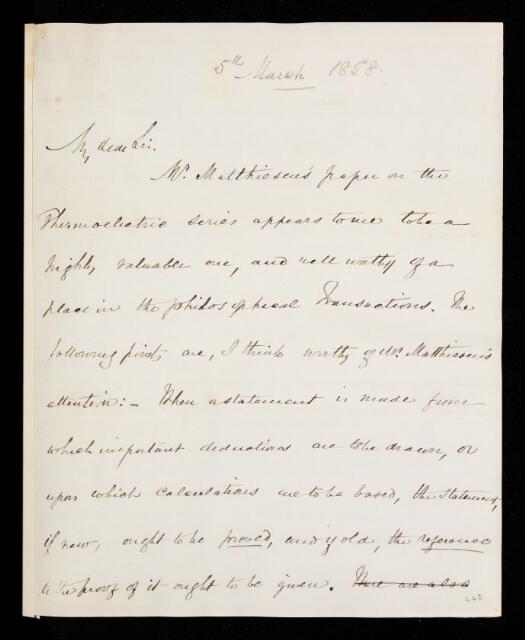 5th March 1858.
My dear Sir.
Mr. Matthiesen's paper on the
Thermoelectric series appears to me to be a
highly valuable one, and well worthy of a
place in the Philosophical Transactions. The
following points are, I think worthy of Mr. Matthiesen's
attention:- When a statement is made from
which important deductions are to be drawn, or
upon which calculations are to be based, the statement,
if new, ought to be proved, and if old, the reference
to the proof of it ought to be given. There are also
442